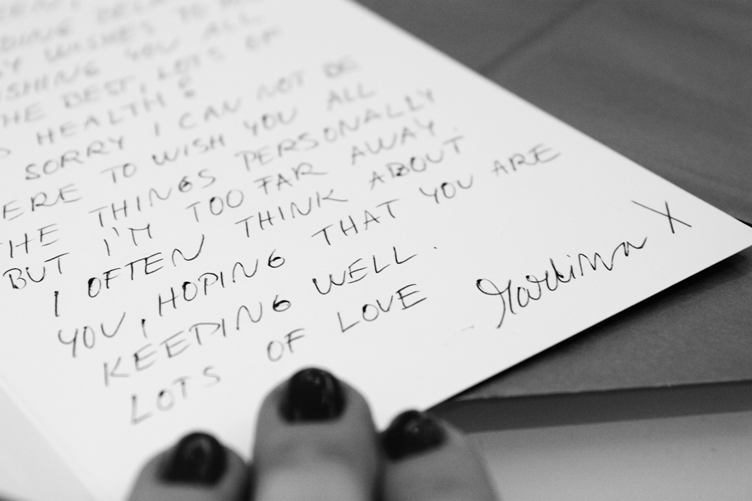 WISHES TO
WISHING YOU ALL
THE BEST, LOTS OF
HEALTH &
SORRY I CAN NOT BE
HERE TO WISH YOU ALL
THE THINGS PERSONALLY
BUT I'M TOO FAR AWAY.
I OFTEN THINK ABOUT
YOU, HOPING THAT YOU ARE
KEEPING WELL.
LOTS OF LOVE
Martina X